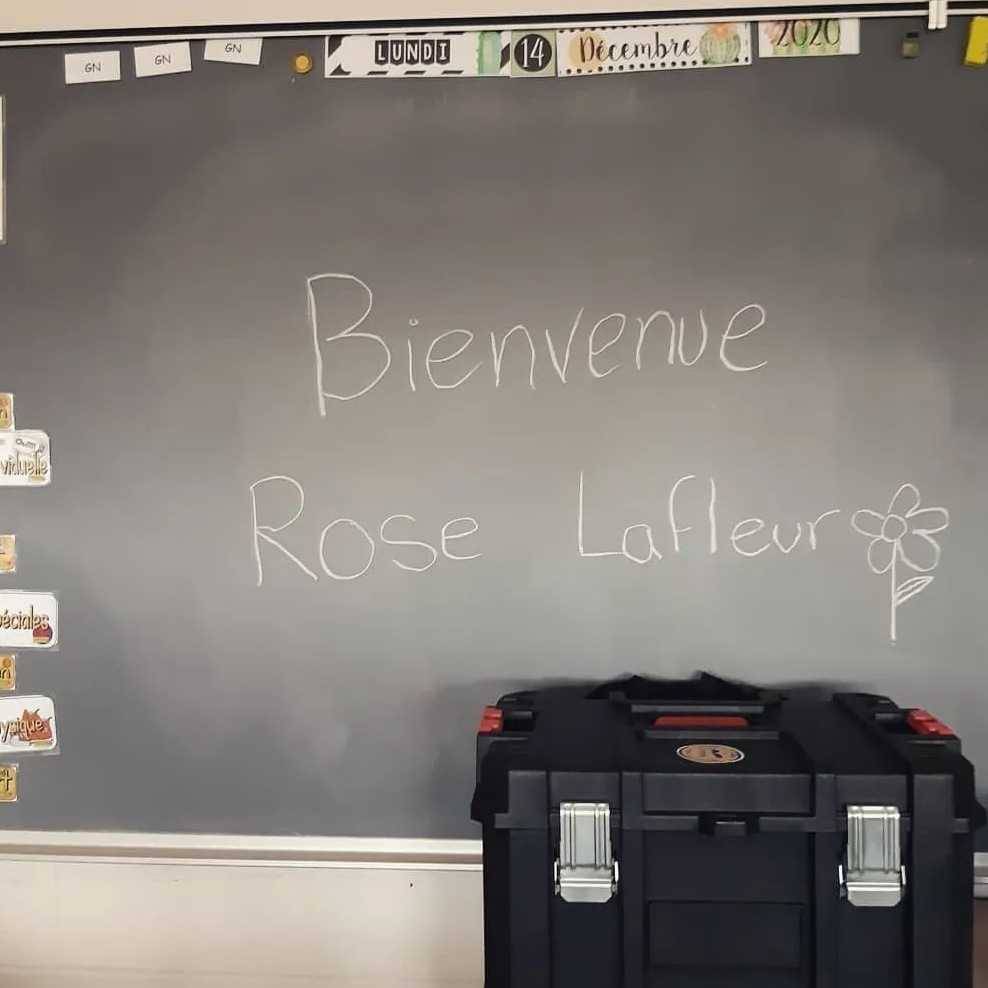 GN GN GN LUNDI 14 Décembre 2020
Bienvenue
Rose Lafleur
viduelle
éciales